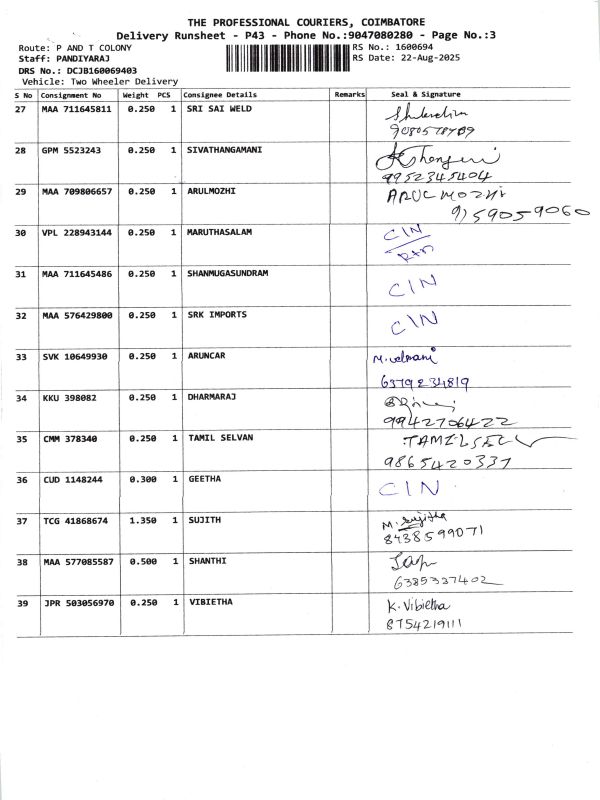 THE PROFESSIONAL COURIERS, COIMBATORE
Delivery Runsheet - P43 - Phone No.:9047080280 - Page No.:3
Route: P AND T COLONY RS No.: 1600694
Staff: PANDIYARAJ RS Date: 22-Aug-2025
DRS No.: DCJB160069403
Vehicle: Two Wheeler Delivery
S No Consignment No Weight PCS Consignee Details Remarks Seal & Signature
27 MAA 711645811 0.250 1 SRI SAI WELD
28 GPM 5523243 0.250 1 SIVATHANGAMANI
9952345404
29 MAA 709806657 0.250 1 ARULMOZHI ARUL MOZHI
30 VPL 228943144 0.250 1 MARUTHASALAM CIN
31 MAA 711645486 0.250 1 SHANMUGASUNDRAM CIN
32 MAA 576429800 0.250 1 SRK IMPORTS CIN
33 SVK 10649930 0.250 1 ARUNCAR
6379234819
34 KKU 398082 0.250 1 DHARMARAJ
9942706422
35 CMM 378340 0.250 1 TAMIL SELVAN
9865420337
36 CUD 1148244 0.300 1 GEETHA CIN
37 TCG 41868674 1.350 1 SUJITH M. Sujitha
8438599071
38 MAA 577085587 0.500 1 SHANTHI
6385337402
39 JPR 503056970 0.250 1 VIBIETHA K. Vibietha
8754219111